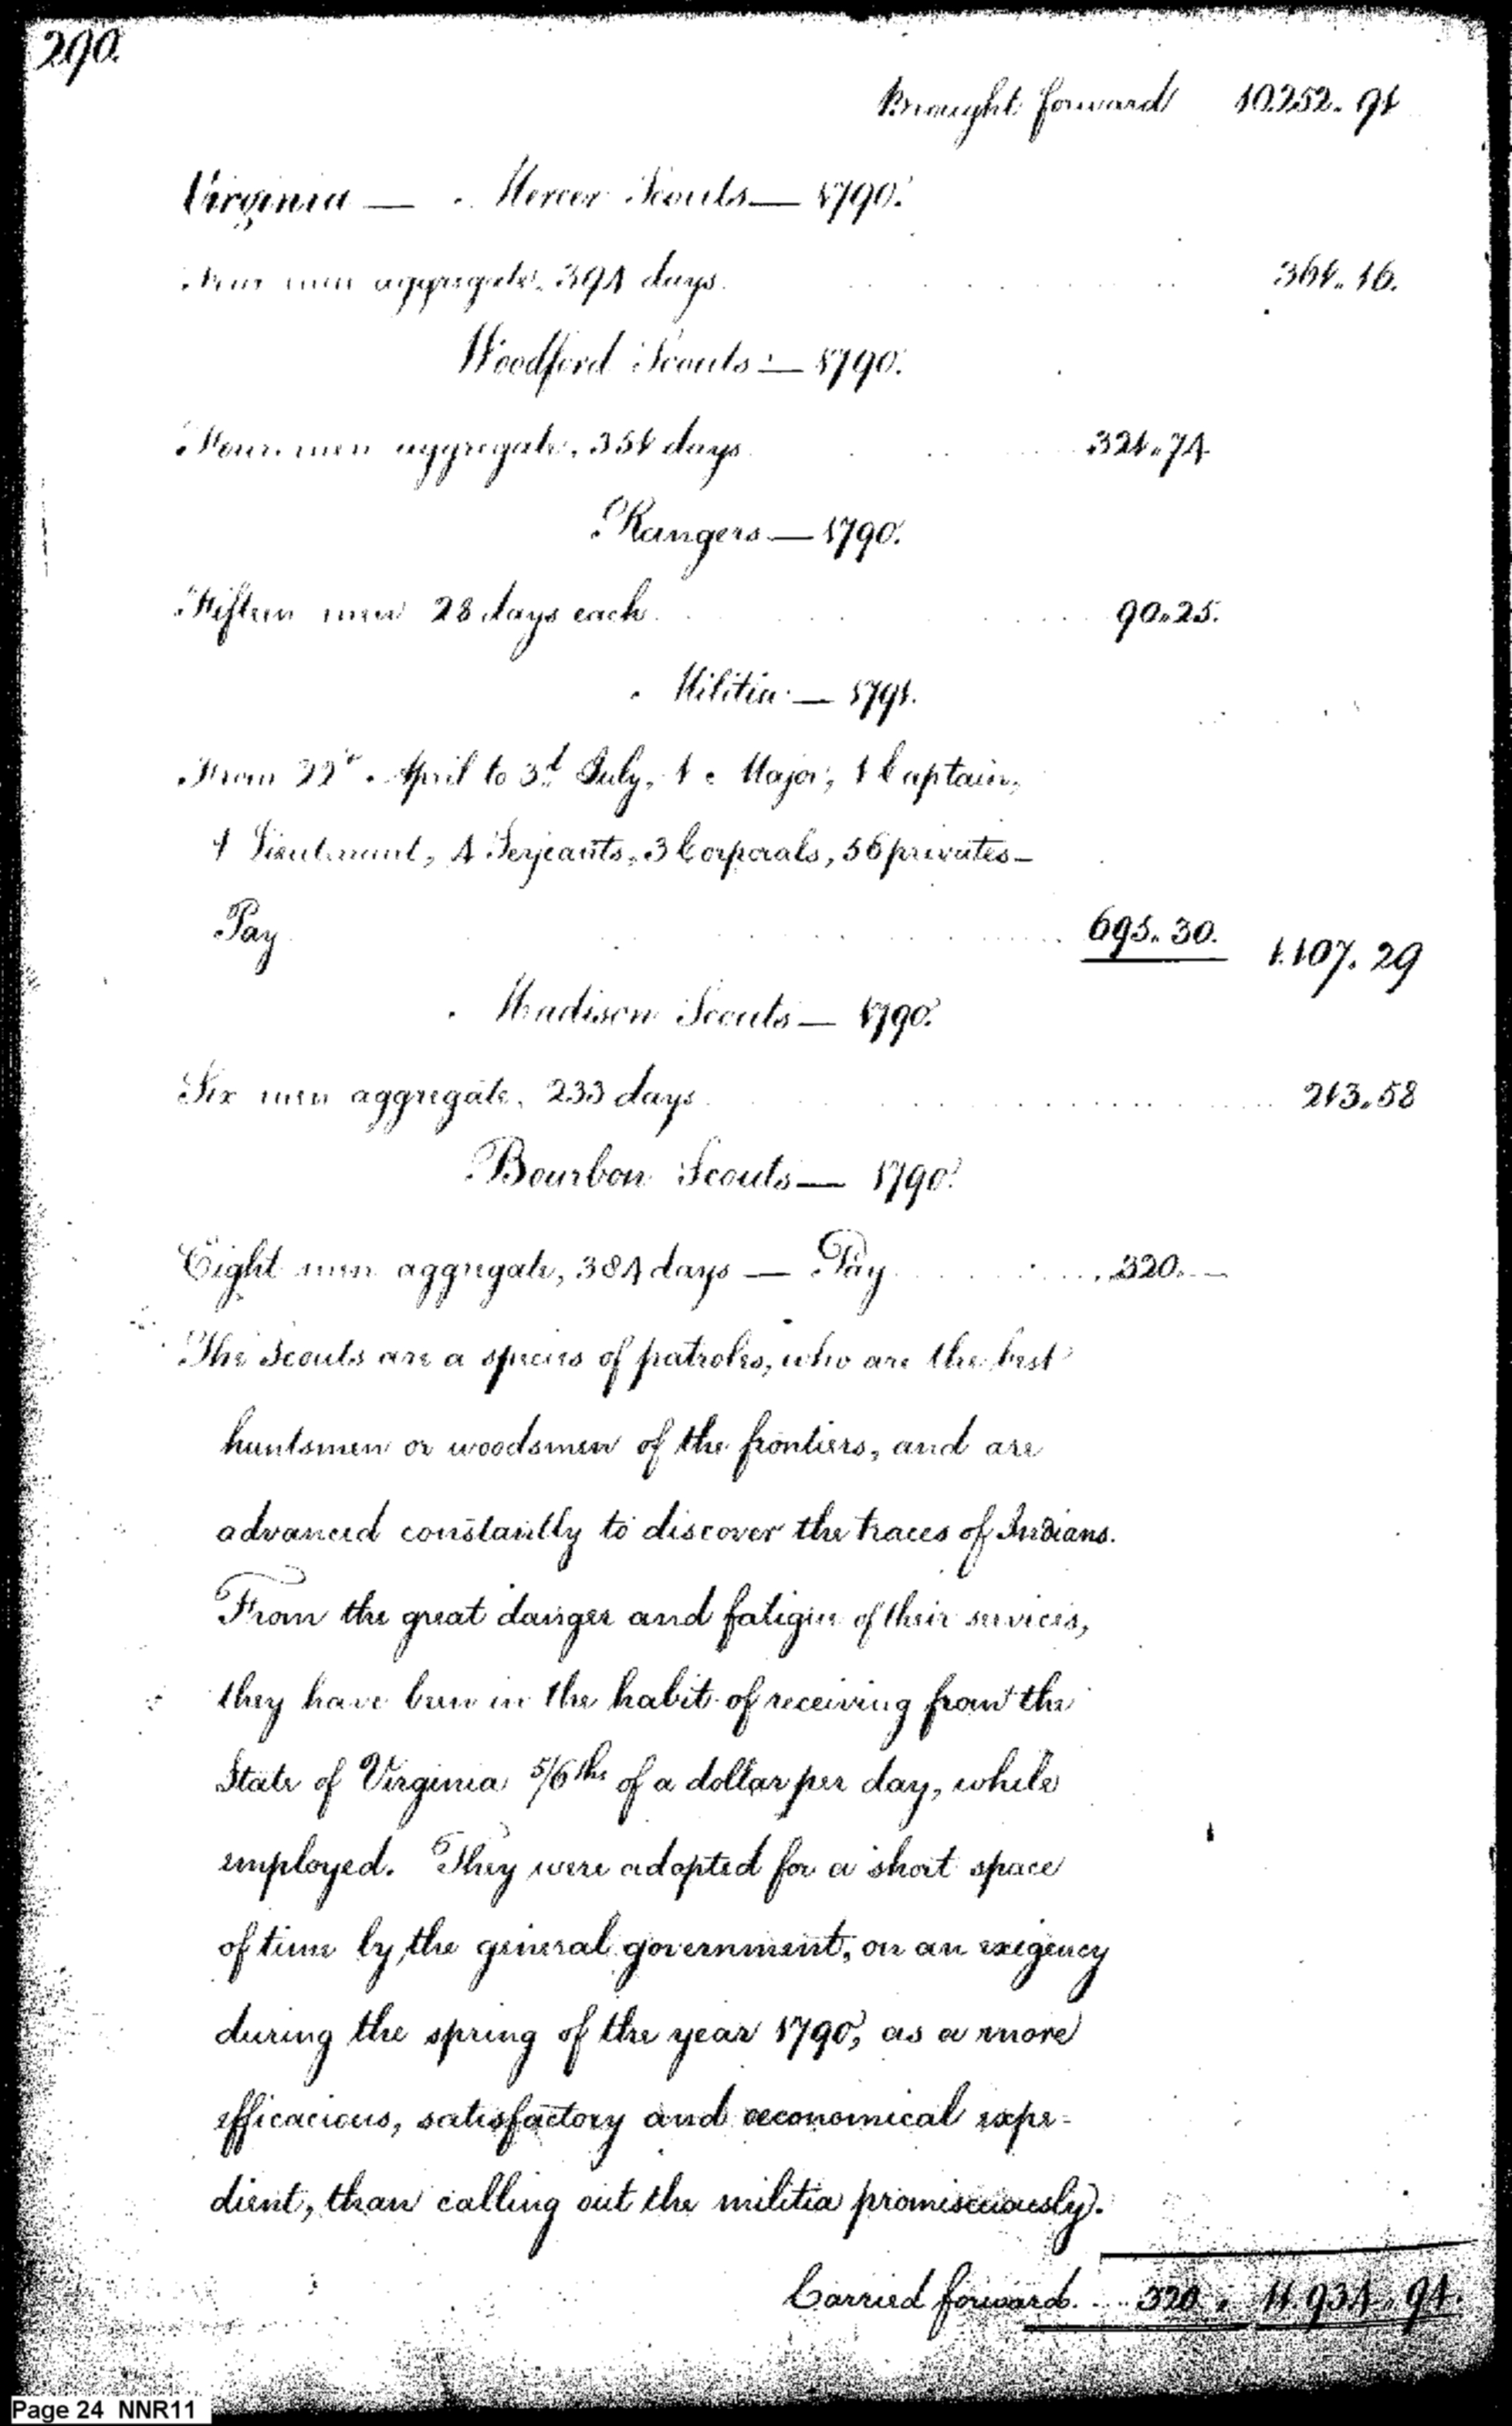 290.
Brought forward 10.252.. 91
Virginia — Mercer Scouts — 1790.
Four men aggregate, 394 days. 361.. 16.
Woodford Scouts — 1790.
Four men aggregate, 351 days 321.. 74
Rangers — 1790.
Fifteen men 28 days each 90.. 25.
Militia — 1791.
From 22d April to 3d July, 1 Major, 1 Captain,
1 Lieutenant, 4 Serjeants, 3 Corporals, 56 privates —
Pay 695.. 30. 1.107. 29
Madison Scouts — 1790.
Six men aggregate, 233 days 213.. 58
Bourbon Scouts — 1790.
Eight men aggregate, 384 days — Pay 320. —
The Scouts are a species of patroles, who are the best
huntsmen or woodsmen of the frontiers, and are
advanced constantly to discover the traces of Indians.
From the great danger and fatigue of their services,
they have been in the habit of receiving from the
State of Virginia 5/6ths of a dollar per day, while
employed. They were adopted for a short space
of time by the general government, on an exigency
during the spring of the year 1790, as a more
efficacious, satisfactory and œconomical expe=
dient, than calling out the militia promiscuously.
Carried forward 320. 11.934.. 94.
Page 24 NNR11